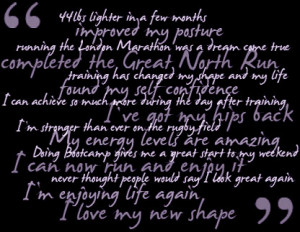 44lbs lighter in a few months
improved my posture
running the London Marathon was a dream come true
completed the Great North Run
training has changed my shape and my life
found my self confidence
I can achieve so much more during the day after training
I've got my hips back
I'm stronger than ever on the rugby field
My energy levels are amazing
Doing Bootcamp gives me a great start to my weekend
I can now run and enjoy it
never thought people would say I look great again
I'm enjoying life again
I love my new shape